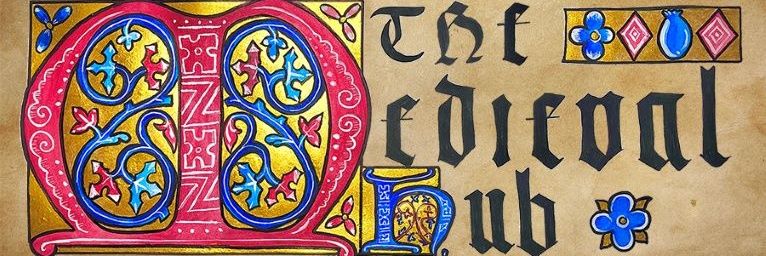 The
Medieval
hub